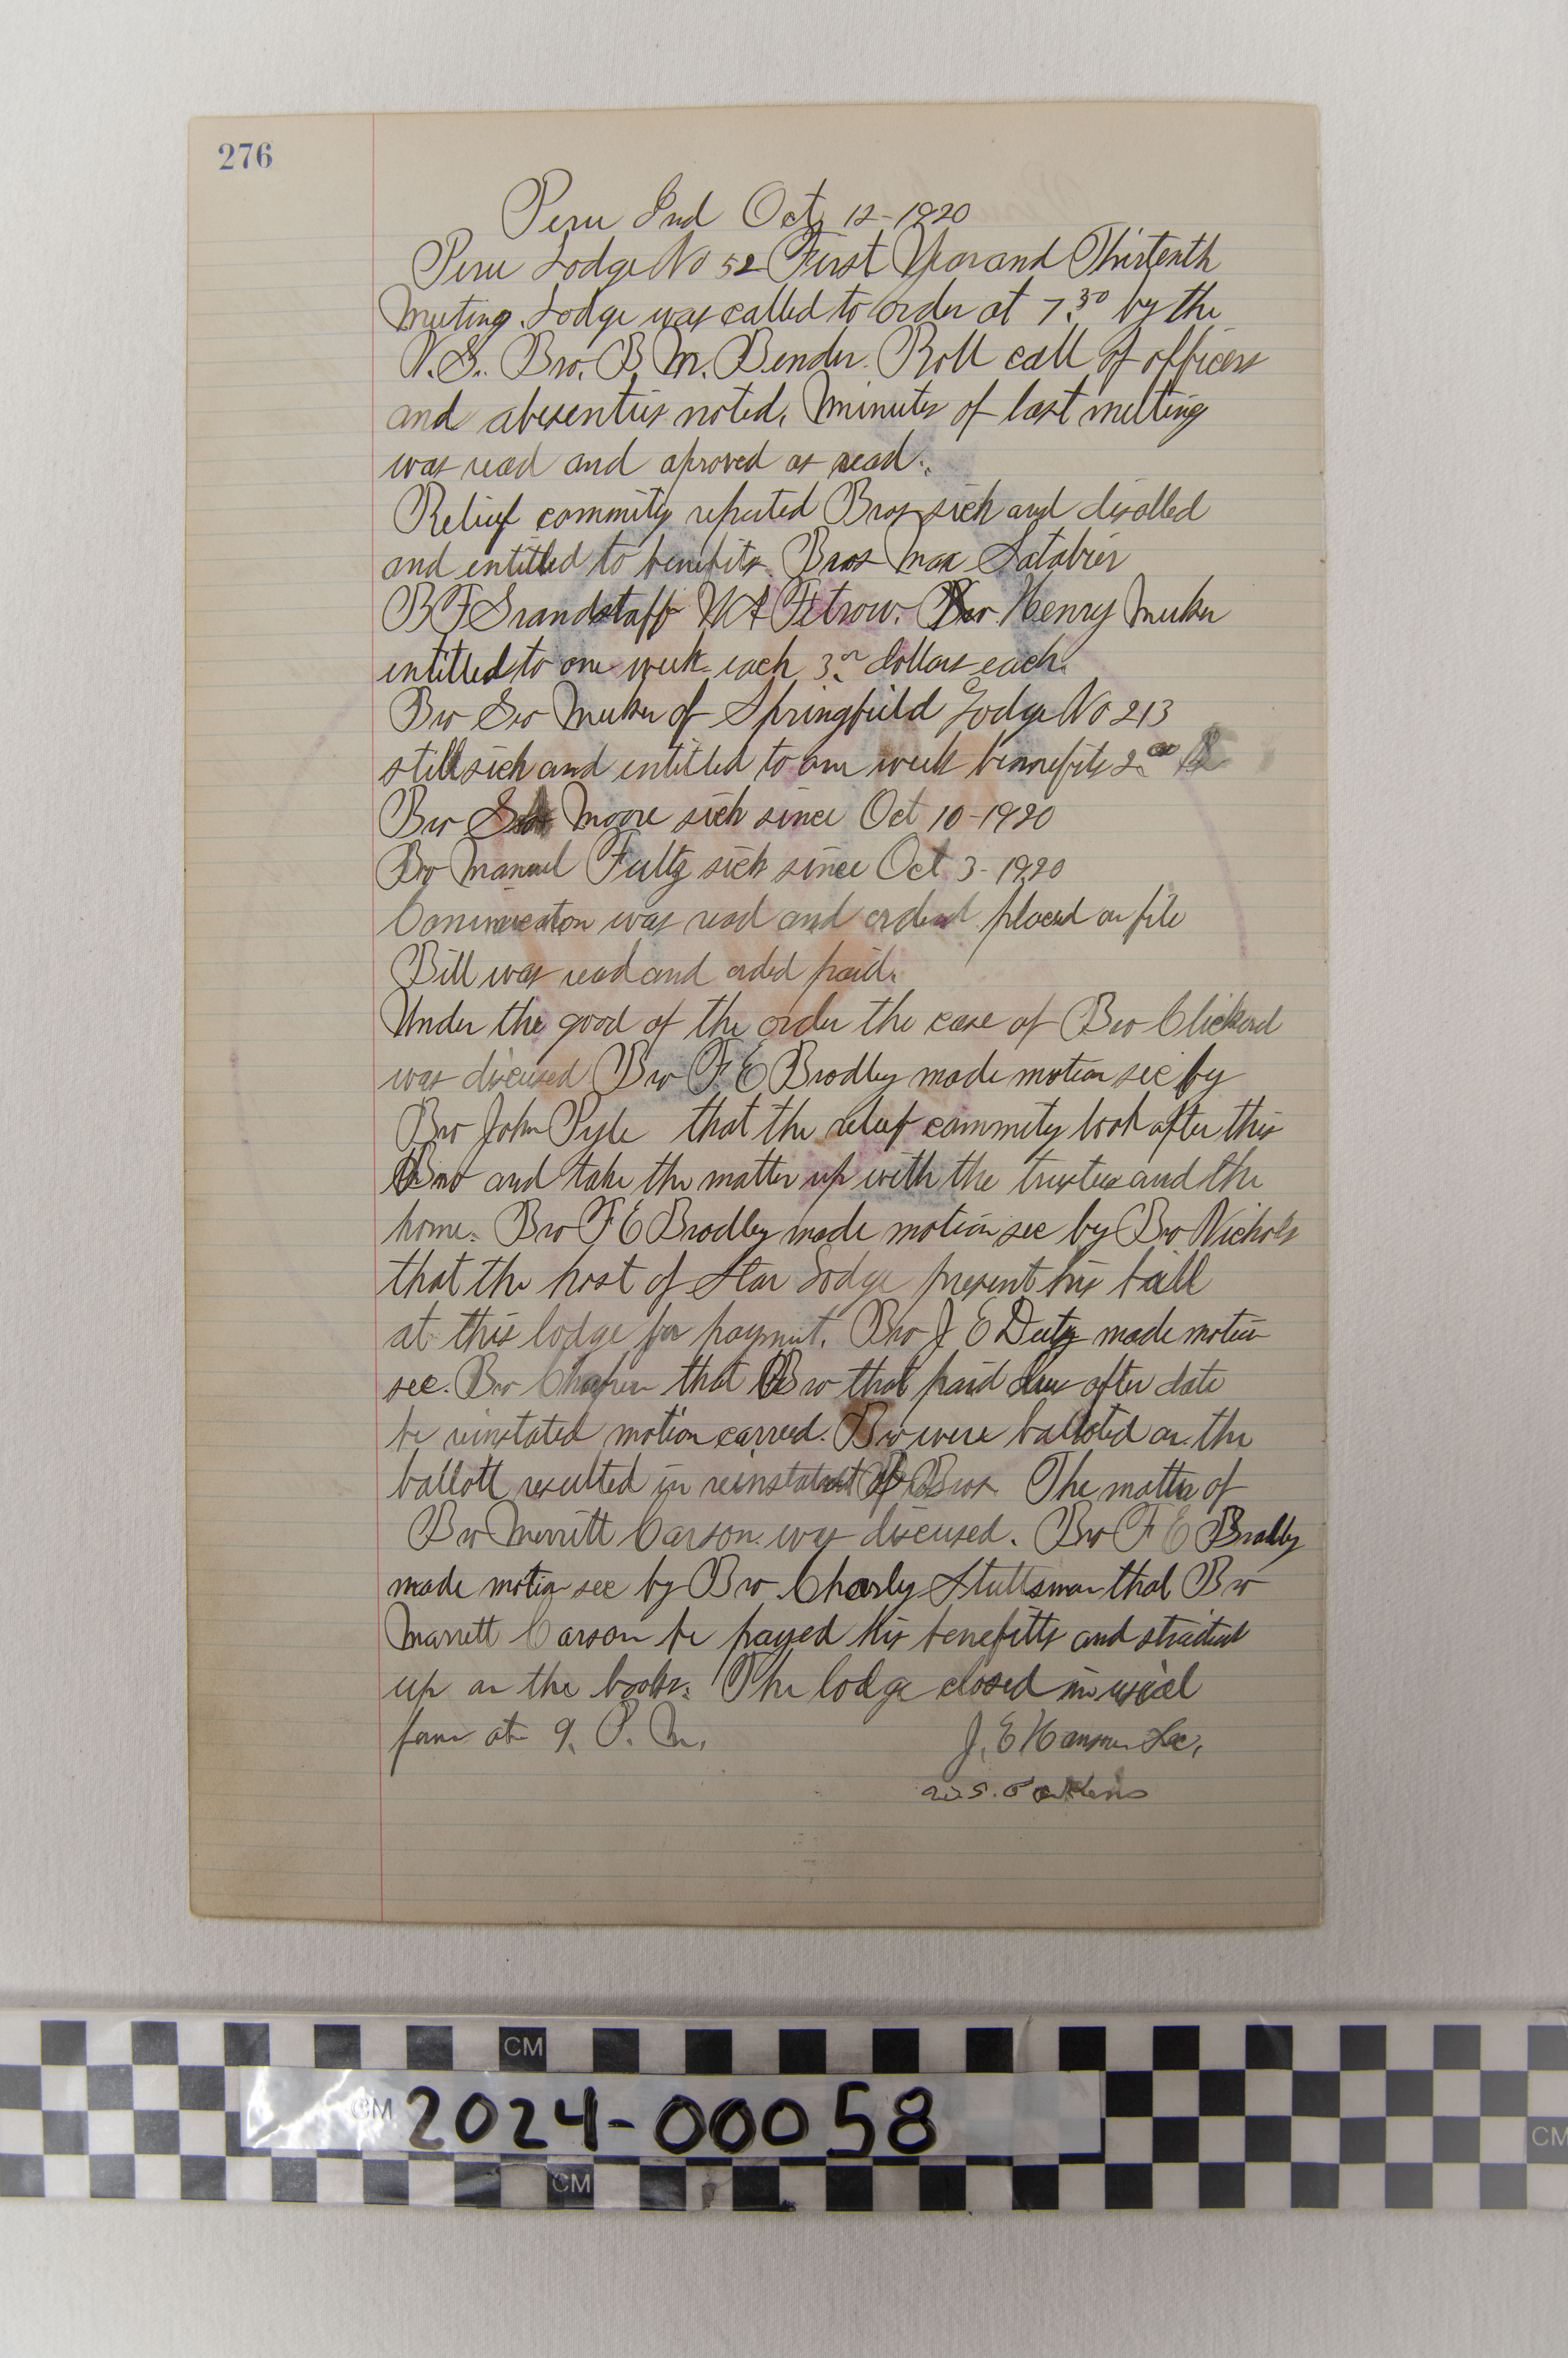 276
Peru Ind Oct, 12-1920
Peru Lodge No 52 First Year and Thirtenth
Meeting. Lodge was called to order at 7.30 by the
N.G. Bro. B. M. Bender. Roll call of officers
and absenties noted. Minutes of last meeting
was read and aproved as read.
Relief commity reported Bros sick and disabled
and entitled to benifits Bros Max
B F Grandstaff W A Fetrow. Bro. Henry Meeker
entitled to one week each 3.00 dollars each.
Bro Geo Meeker of Springfield Lodge No 213
still sick and entitled to one week bennefits 2.00
Bro Moore sick since Oct 10-1920
Bro Manuel Fultz sick since Oct 3-1920
was read and placed on file
Bill was read and orded paid.
Under the good of the order the case of Bro Clickard
was discused Bro F E Bradley made motion sec by
Bro John Pyle that the relief commity look after this
Bro and take the matter up with the trustees and the
home. Bro F E Bradley made motion sec by Bro Nichols
that the host of Star Lodge present his bill
at this lodge for payment. Bro J E Deitz made motion
sec. Bro that Bro that paid dues after date
be reinstated motion carreed. Bro were balloted on the
ballott resulted in of Bros The matter of
Bro Merritt Carson was discused. Bro F E Bradley
made motion sec by Bro Charly Stuttsman that Bro
Marrett Carson be payed his benefitts and
up on the books. The lodge closed in usial
form at 9. P. M. J. E Sec,